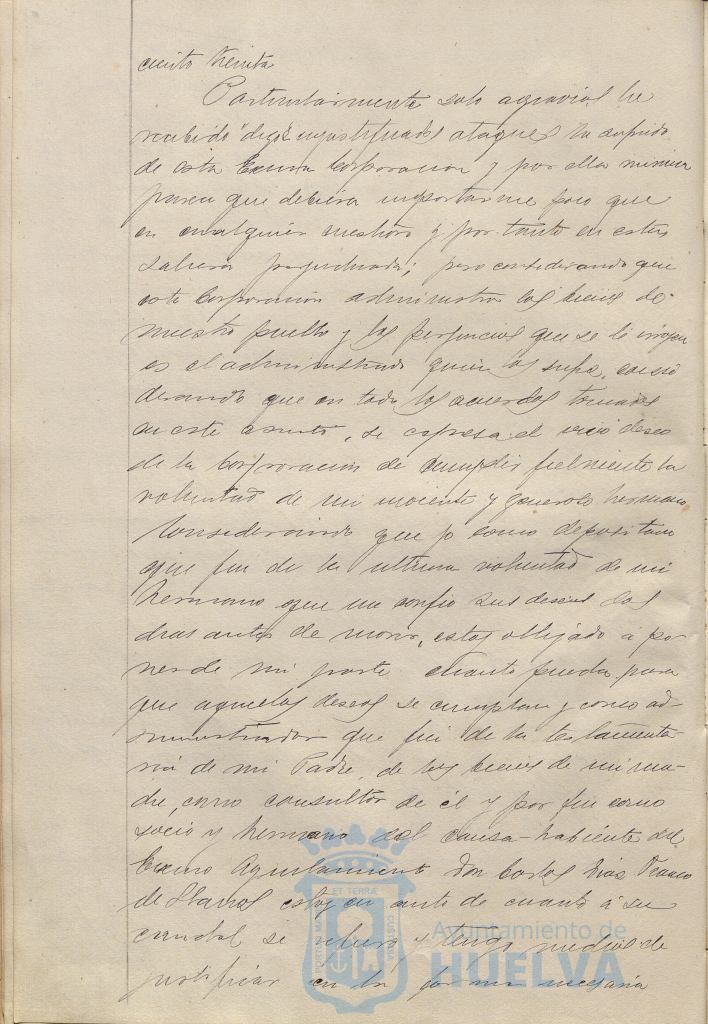 ciento treinta
Particularmente solo agravios he
recibido "digo" injustificados ataques ha sufrido
de esta Excma Corporacion y por ella misma
parece que debiera importarme poco que
en cualquier cuestion y por tanto en esta
saliera perjudicada; pero considerando que
esta Corporacion administra los bienes de
nuestro pueblo y los perjuicios que se le
es el administrado quien los sufre, consi
derando que en todos los acuerdos tomados
en este asunto, se expresa el deseo
de la Corporacion de cumplir fielmente la
voluntad de mi inocente y generoso hermano
Considerando que yo como depositario
que fui de la ultima voluntad de mi
hermano que me confio sus deseos dos
dias antes de morir, estoy obligado a po
ner de mi parte cuanto pueda para
que aquellos deseos se cumplan y como ad-
ministrador que fui de la testamenta
ria de mi Padre, de los bienes de mi ma-
dre, como consultor de él y por fin como
socio y hermano del causa-habiente del
Excmo Ayuntamiento don Carlos Diaz Franco
de Llanos estoy en autos de cuanto á su
caudal se refiere, y tengo medios de
justificar en la forma necesaria
PORTUM MARIS ET TERRÆ CUSTODIA
Ayuntamiento de
HUELVA